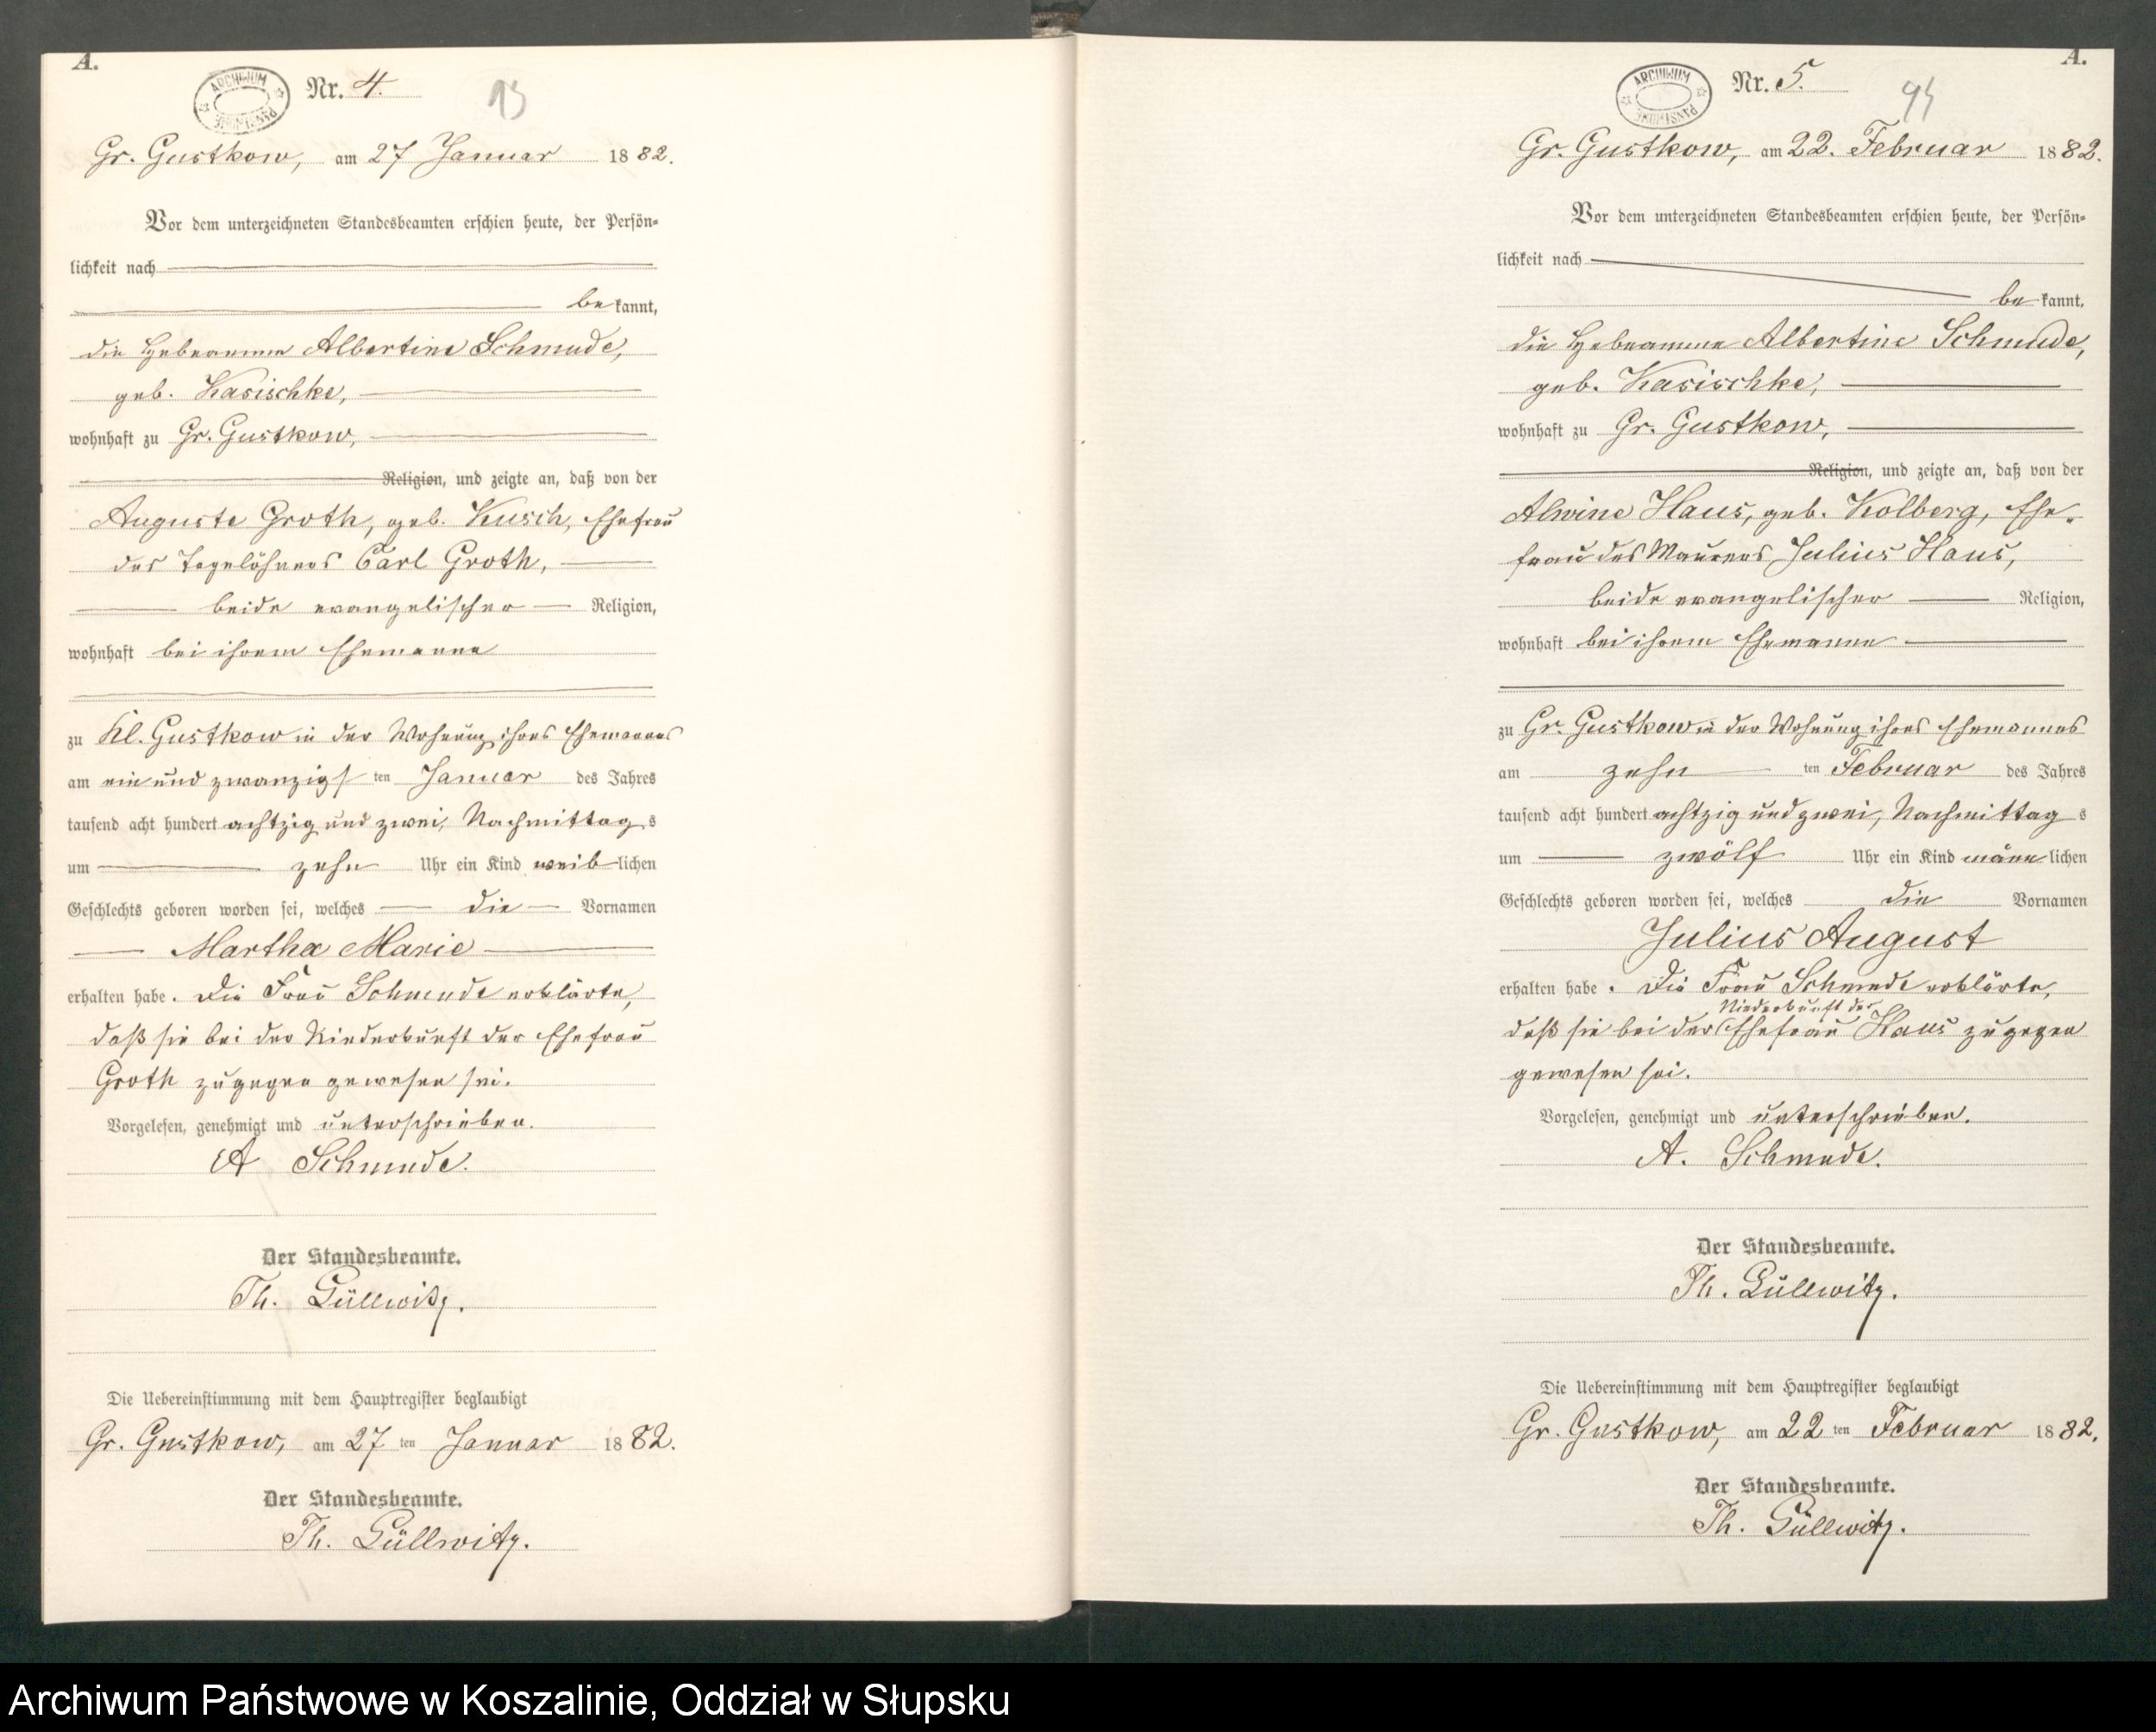 A.
ARCHIWUM PAŃSTWOWE
Nr. 4.
93
Gr. Gustkow, am 27 Januar 1882.
Vor dem unterzeichneten Standesbeamten erschien heute, der Persön-
lichkeit nach
bekannt,
die Hebeamme Albertine Schmude,
geb. Kasischke,
wohnhaft zu Gr. Gustkow,
Religion, und zeigte an, daß von der
Auguste Groth, geb. Kusch, Ehefrau
des Tagelöhners Carl Groth,
beide evangelischer Religion,
wohnhaft bei ihrem Ehemanne
zu Kl. Gustkow in der Wohnung ihres Ehemannes
am ein und zwanzigsten Januar des Jahres
tausend acht hundert achtzig und zwei, Nachmittags
um zehn Uhr ein Kind weiblichen
Geschlechts geboren worden sei, welches die Vornamen
Martha Marie
erhalten habe. Die Frau Schmude erklärte,
daß sie bei der Niederkunft der Ehefrau
Groth zugegen gewesen sei.
Vorgelesen, genehmigt und unterschrieben.
A Schmude.
Der Standesbeamte.
Th. Güllwitz.
Die Uebereinstimmung mit dem Hauptregister beglaubigt
Gr. Gustkow, am 27 ten Januar 1882.
Der Standesbeamte.
Th. Güllwitz.
A.
ARCHIWUM PAŃSTWOWE
Nr. 5.
94
Gr. Gustkow, am 22. Februar 1882.
Vor dem unterzeichneten Standesbeamten erschien heute, der Persön-
lichkeit nach
bekannt,
die Hebeamme Albertine Schmude,
geb. Kasischke,
wohnhaft zu Gr. Gustkow,
Religion, und zeigte an, daß von der
Alwine Haus, geb. Kolberg, Ehe-
frau des Maurers Julius Haus,
beide evangelischer Religion,
wohnhaft bei ihrem Ehemanne
zu Gr. Gustkow in der Wohnung ihres Ehemannes
am zehn ten Februar des Jahres
tausend acht hundert achtzig und zwei, Nachmittags
um zwölf Uhr ein Kind männlichen
Geschlechts geboren worden sei, welches die Vornamen
Julius August
erhalten habe. Die Frau Schmude erklärte,
daß sie bei der Niederkunft der Ehefrau Haus zugegen
gewesen sei.
Vorgelesen, genehmigt und unterschrieben.
A. Schmude.
Der Standesbeamte.
Th. Güllwitz.
Die Uebereinstimmung mit dem Hauptregister beglaubigt
Gr. Gustkow, am 22 ten Februar 1882.
Der Standesbeamte.
Th. Güllwitz.
Archiwum Państwowe w Koszalinie, Oddział w Słupsku